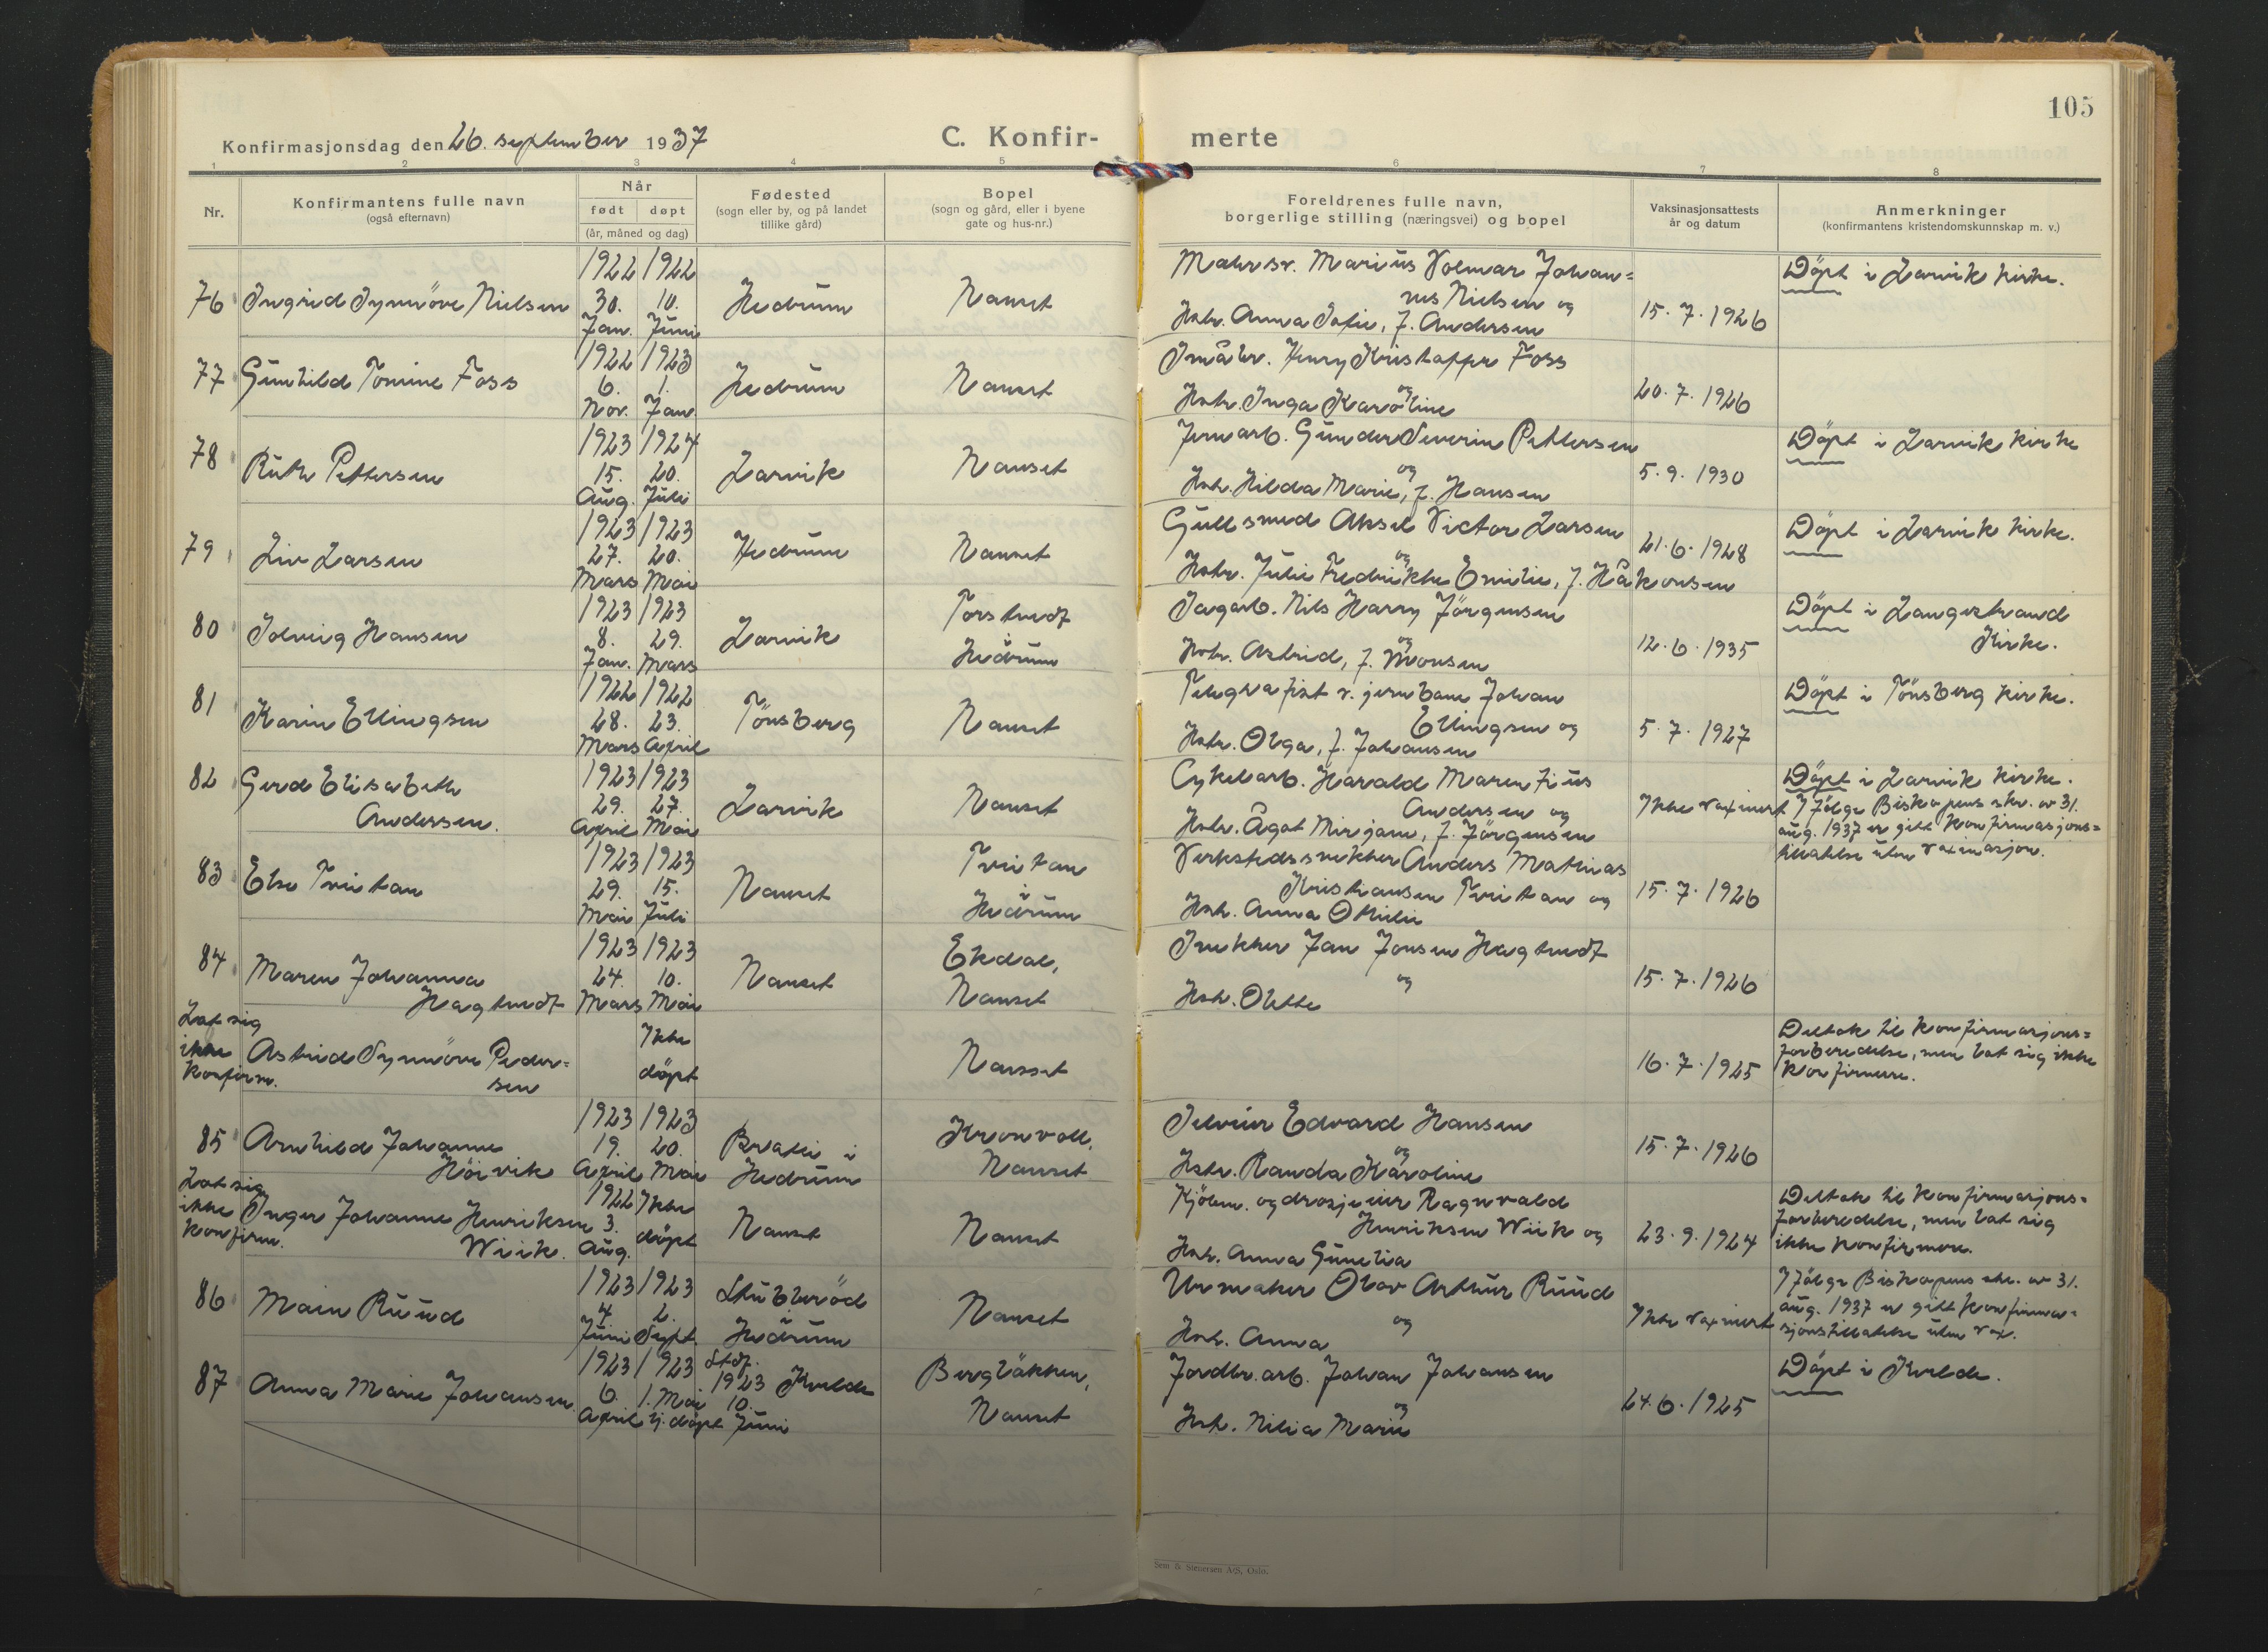 105
Konfirmasjonsdag den 26. september 1937
C. Konfir-
merte
1 2 3 4 5 6 7 8
Nr.
Konfirmantens fulle navn
(også efternavn)
Når
født døpt
(år, måned og dag)
Fødested
(sogn eller by, og på landet
tillike gård)
Bopel
(sogn og gård, eller i byene
gate og hus-nr.)
Foreldrenes fulle navn,
borgerlige stilling (næringsvei) og bopel
Vaksinasjonsattests
år og datum
Anmerkninger
(konfirmantens kristendomskunnskap m. v.)
76 Ingrid Synnöve Nielsen
1922 1922
30. 10.
Jan. Juni
Hedrum
Nanset
Malersv. Marius Volmar Johan=
nes Nielsen og
Hstr. Anna Sofie, f. Andersen
15. 7. 1926
Döpt i Larvik kirke.
77 Gunhild Tomine Foss
1922 1923
6. 1.
Nov. Jan.
Hedrum
Nanset
Småbr. Henry Kristoffer Foss
og
Hstr. Inga Karoline
20. 7. 1926
78 Ruth Pettersen
1923 1924
15. 20.
Aug. Juli
Larvik
Nanset
Jernarb. Gunder Severin Pettersen
og
Hstr. Hilda Marie, f. Hansen
5. 9. 1930
Döpt i Larvik kirke
79 Liv Larsen
1923 1923
27. 20.
Mars Mai
Hedrum
Nanset
Gullsmed Aksel Victor Larsen
og
Hstr. Julie Fredrikke Emilie, f. Håkonsen
21. 6. 1928
Döpt i Larvik kirke.
80 Solveig Hansen
1923 1923
8. 29.
Jan. Mars
Larvik
Torstvedt
i
Hedrum
Sagarb. Nils Harry Jörgensen
og
Hstr. Astrid, f. Monsen
12. 6. 1935
Döpt i Langestrand
Kirke.
81 Karin Ellingsen
1922 1922
28. 23.
Mars April
Tönsberg
Nanset
Telegrafist v. jernbane Johan
Ellingsen og
Hstr. Olga, f. Johansen
5. 7. 1927
Döpt i Tönsberg kirke.
82 Gerd Elisabeth
Andersen.
1923 1923
29. 27.
April Mai
Larvik
Nanset
Cykelarb. Harald Marentius
Andersen og
Hstr. Ågot Mirjam, f. Jörgensen
Ikke vaxinert
Döpt i Larvik kirke.
I fölge Biskopens skr. av 31.
aug. 1937 er gitt konfirmasjons=
tillatelse uten vaxinasjon.
83 Else Tveitan
1923 1923
29. 15.
Mai Juli
Nanset
Tveitan
i
Hedrum
Verkstedssnekker Anders Mathias
Kristiansen Tveitan og
Hstr. Anna Otilie
15. 7. 1926
84 Maren Johanna
Hagtvedt
1923 1923
24. 10.
Mars Mai
Nanset
Ekdal,
Nanset
Snekker Jan Jonsen Hagtvedt
og
Hstr. Olette
15. 7. 1926
Lot sig
ikke
konfirm.
Astrid Synnöve Peder=
sen
Ikke
döpt
Nansset
16. 7. 1925
Deltok til konfirmasjons=
forberedelse, men lot sig ikke
konfirmere.
85 Arnhild Johanne
Höivik
1923 1923
19. 20.
April Mai
Bratli i
Hedrum
Kronvoll,
Nanset
Selveier Edvard Hansen
og
Hstr. Randa Karoline
15. 7. 1926
Lot sig
ikke
konfirm.
Inger Johanne Henriksen
Wiik.
1922 Ikke
3. döpt
Aug.
Nanset
Nanset
Kjöbm. og drosjeeier Ragnvald
Henriksen Wiik og
Hstr. Anna Gunelia
23. 9. 1924
Deltok til konfirmasjons=
forberedelse, men lot sig
ikke konfirmere.
86 Main Ruud
1923 1923
4. 2.
Juni Sept.
Stubberöd
i
Hedrum
Nanset
Urmaker Olav Arthur Ruud
og
Hstr. Anna
Ikke vaxinert
I fölge Biskopens skr. av 31.
aug. 1937 er gitt konfirma=
sjonstillatelse uten vax.
87 Anna Marie Johansen.
1923 1923
6. 1. Mai
April hj. döpt
Stdf.
1923
10.
Juni
Kvelde
Bergbäkken,
Nanset
Jordbr. arb. Johan Johansen
og
Hstr. Nilia Marie
24. 6. 1925
Döpt i Kvelde.
Sem & Stenersen A/S, Oslo.